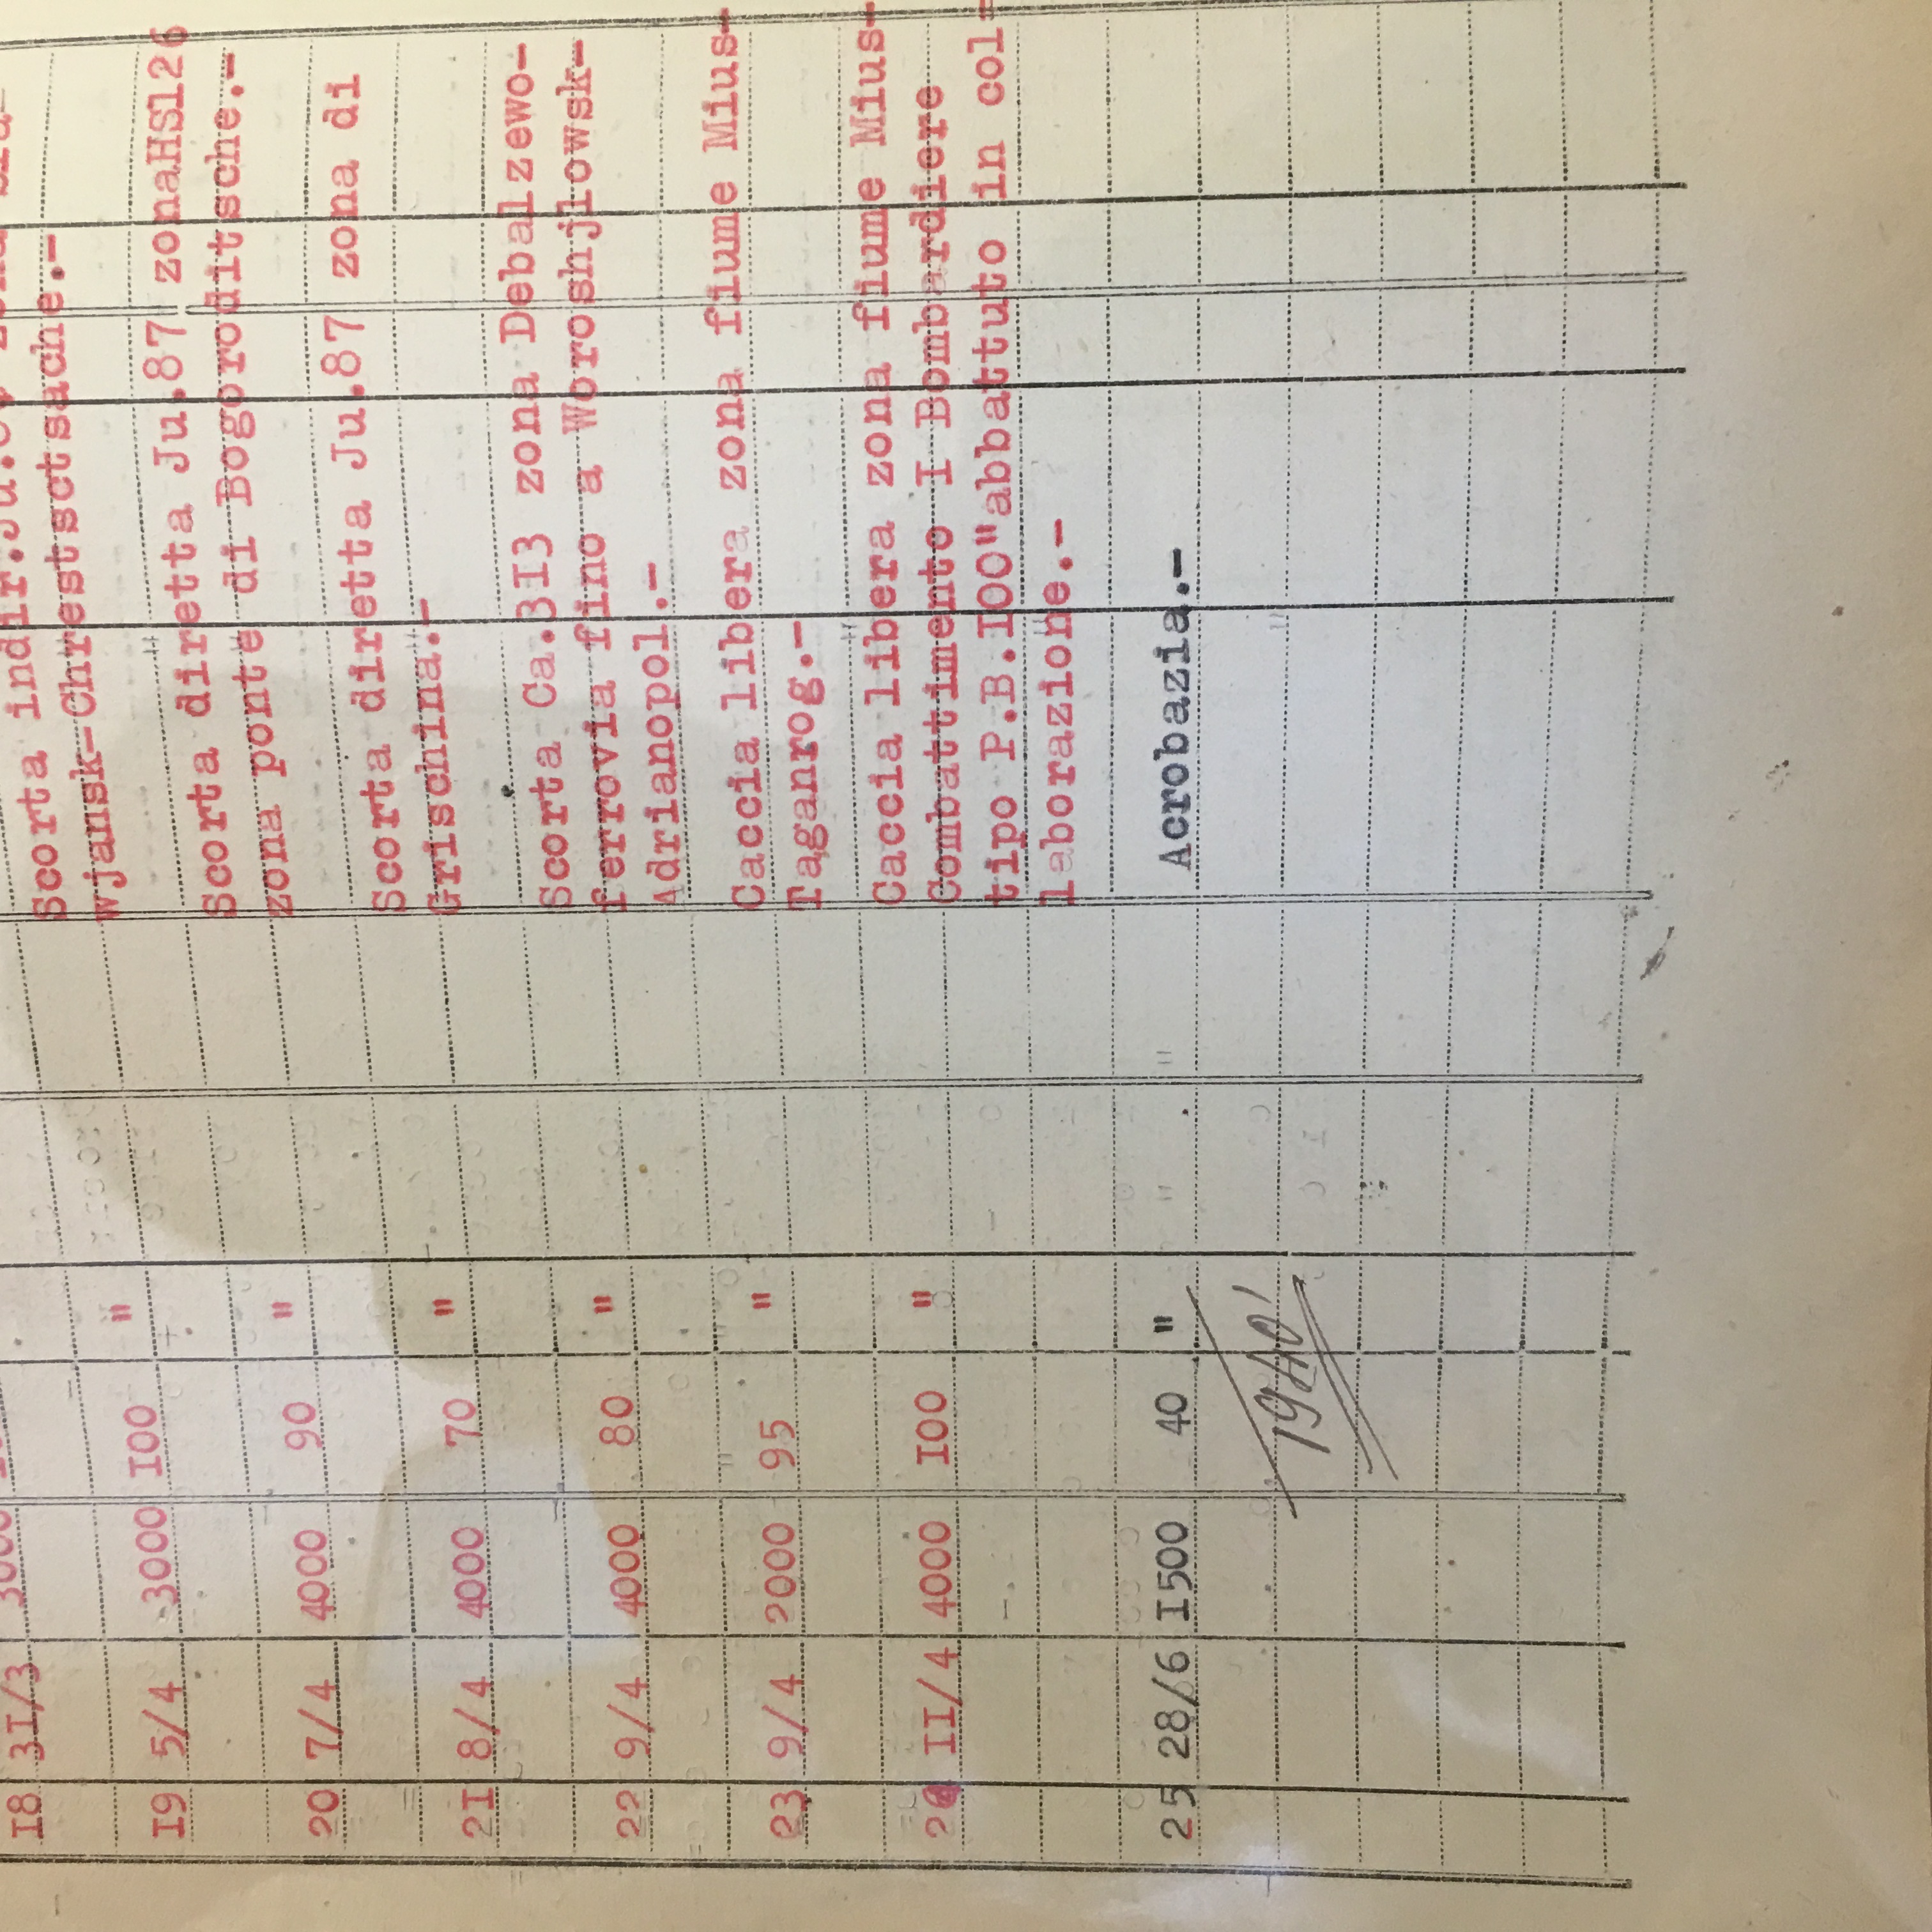 I8 3I/3 3000 Scorta indir.Ju.
wjansk-Chrestsctsache.-
I9 5/4 3000 I00 " Scorta diretta Ju.87 zonaHS126
zona ponte di Bogoroditsche.-
20 7/4 4000 90 " Scorta diretta Ju.87 zona di
Grischina.-
2I 8/4 4000 70 " Scorta Ca.3I3 zona Debalzewo-
ferrovia fino a Woroshjlowsk-
Adrianopol.-
22 9/4 4000 80 "
23 9/4 2000 95 " Caccia libera zona fiume Mius-
Taganrog.-
II/4 4000 I00 " Caccia libera zona fiume Mius-
Combattimento I Bombardiere
tipo P.B.I00"abbattuto in col-
laborazione.-
25 28/6 I500 40 " Acrobazia.-
1940